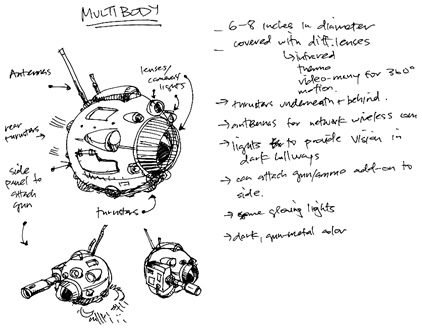 MULTIBODY
Antennas
lenses/
camera/
lights
rear
thrusters
side
panel to
attach
gun
thrustors
- 6-8 inches in diameter
- covered with diff. lenses
↳ infrared
thermo
video-many for 360°
motion.
→ thrustors underneath + behind.
→ antennas for network wireless com
→ lights to provide vision in
dark hallways
→ can attach gun/ammo add-on to
side.
→ some glowing lights
→ dark, gun-metal color